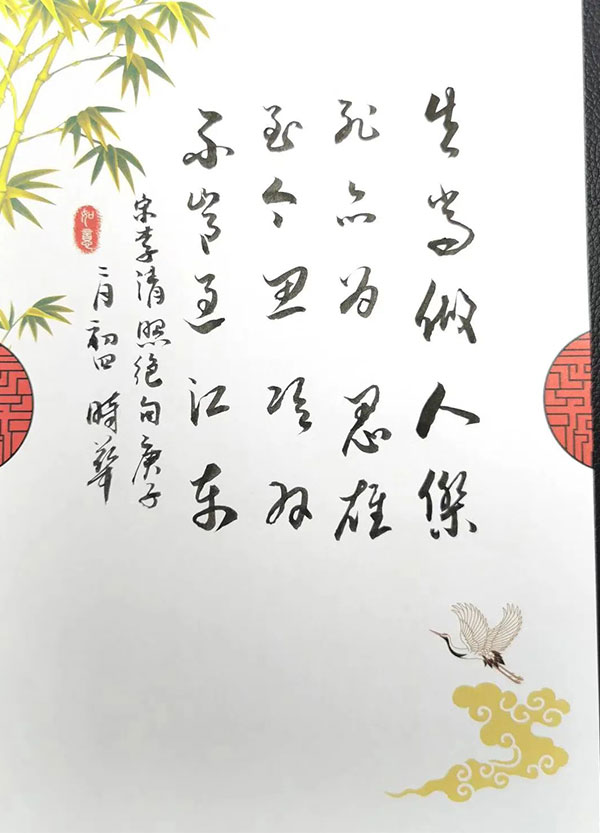 生当做人傑
死亦为鬼雄
至今思项羽
不肯过江东
宋李清照绝句庚子
二月初四時華
如意